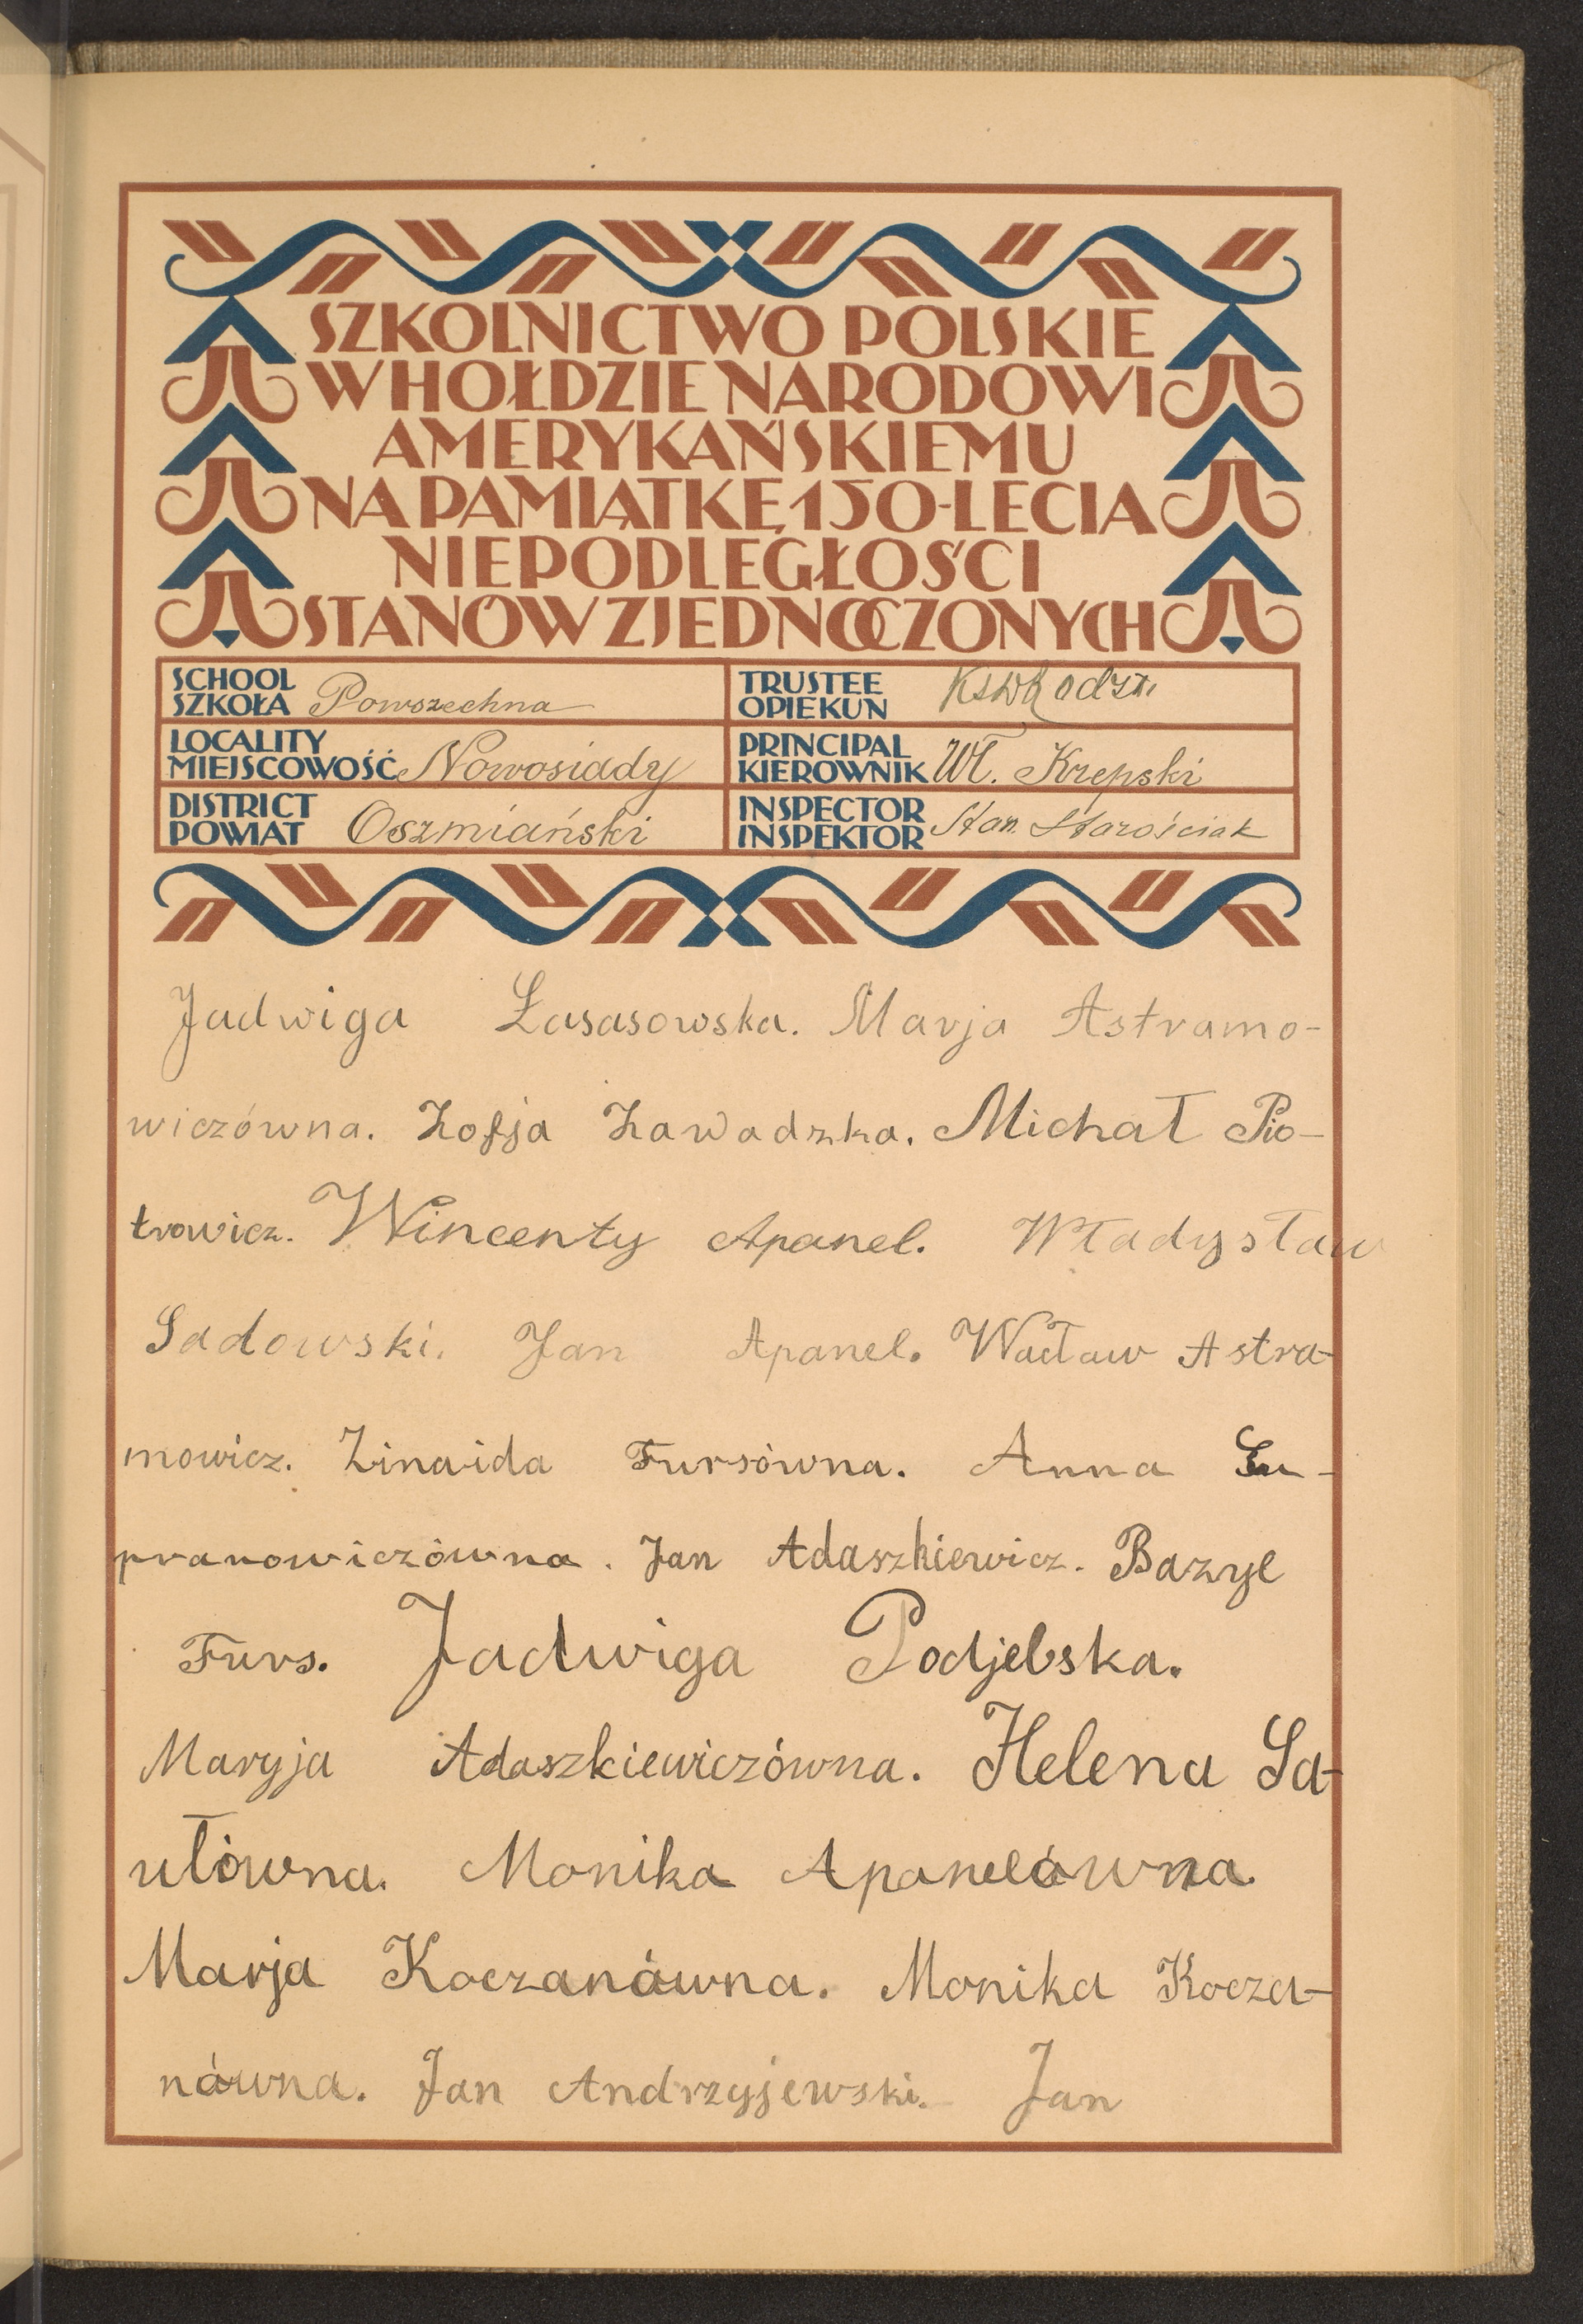 SZKOLNICTWO POLSKIE
W HOŁDZIE NARODOWI
AMERYKAŃSKIEMU
NA PAMIĄTKĘ 150-LECIA
NIEPODLEGŁOŚCI
STANÓW ZJEDNOCZONYCH
SCHOOL
SZKOŁA Powszechna
TRUSTEE
OPIEKUN
LOCALITY
MIEJSCOWOŚĆ Nowosiady
PRINCIPAL
KIEROWNIK Wł. Krepski
DISTRICT
POWIAT Oszmiański
INSPECTOR
INSPEKTOR Stan. Starościak
Jadwiga Łasasowska. Marja Astramo-
wiczówna. Zofja Zawadzka. Michał Pio-
trowicz. Wincenty Apanel. Władysław
Sadowski. Jan Apanel. Wacław Astra-
mowicz. Zinaida Fursówna. Anna Su-
pranowiczówna. Jan Adaszkiewicz. Bazyl
Furs. Jadwiga Podjelska.
Maryja Adaszkiewiczówna. Helena Sa-
ułówna. Monika Apanelówna.
Marja Koczanówna. Monika Kocza-
nówna. Jan Andrzyjewski. Jan